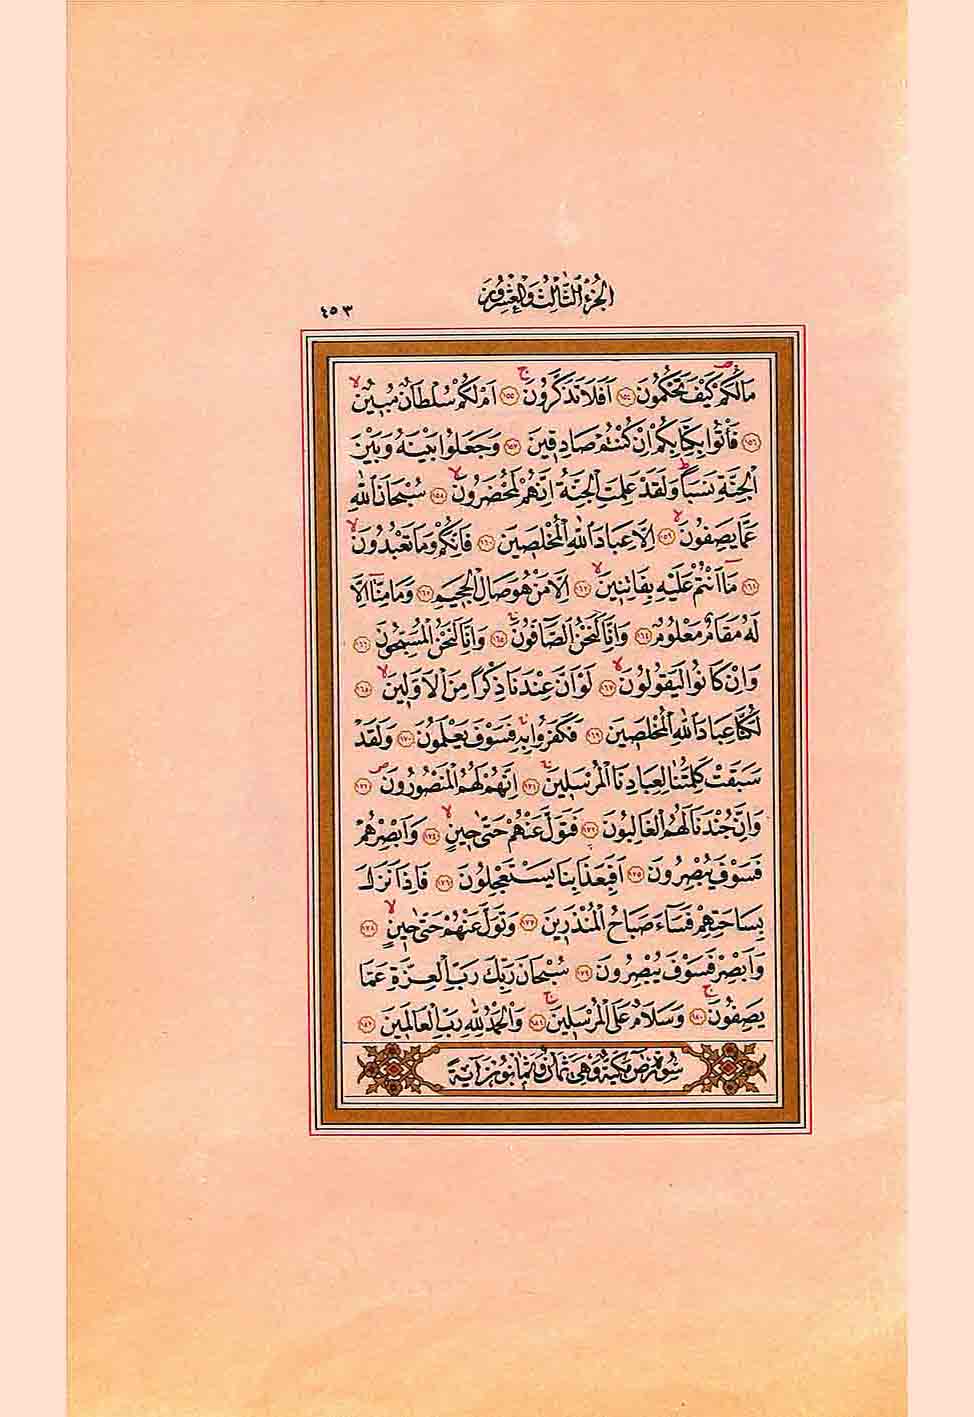 الجزء الثالث والعشرون
٤٥٣
مَالَكُمْ كَيْفَ تَحْكُمُونَ ﴿١٥٤﴾ اَفَلَا تَذَكَّرُونَ ۚ ﴿١٥٥﴾ اَمْ لَكُمْ سُلْطَانٌ مُب۪ينٌ ۙ
﴿١٥٦﴾ فَأْتُوا بِكِتَابِكُمْ اِنْ كُنْتُمْ صَادِق۪ينَ ﴿١٥٧﴾ وَجَعَلُوا بَيْنَهُ وَبَيْنَ
الْجِنَّةِ نَسَبًا ۜ وَلَقَدْ عَلِمَتِ الْجِنَّةُ اِنَّهُمْ لَمُحْضَرُونَ ۙ ﴿١٥٨﴾ سُبْحَانَ اللّٰهِ
عَمَّا يَصِفُونَ ۙ ﴿١٥٩﴾ اِلَّا عِبَادَ اللّٰهِ الْمُخْلَص۪ينَ ﴿١٦٠﴾ فَاِنَّكُمْ وَمَا تَعْبُدُونَ ۙ
﴿١٦١﴾ مَٓا اَنْتُمْ عَلَيْهِ بِفَاتِن۪ينَ ۙ ﴿١٦٢﴾ اِلَّا مَنْ هُوَ صَالِ الْجَح۪يمِ ﴿١٦٣﴾ وَمَا مِنَّٓا اِلَّا
لَهُ مَقَامٌ مَعْلُومٌ ﴿١٦٤﴾ وَاِنَّا لَنَحْنُ الصَّٓافُّونَ ۚ ﴿١٦٥﴾ وَاِنَّا لَنَحْنُ الْمُسَبِّحُونَ ﴿١٦٦﴾
وَاِنْ كَانُوا لَيَقُولُونَ ۙ ﴿١٦٧﴾ لَوْ اَنَّ عِنْدَنَا ذِكْرًا مِنَ الْاَوَّل۪ينَ ۙ ﴿١٦٨﴾
لَكُنَّا عِبَادَ اللّٰهِ الْمُخْلَص۪ينَ ﴿١٦٩﴾ فَكَفَرُوا بِه۪ فَسَوْفَ يَعْلَمُونَ ﴿١٧٠﴾ وَلَقَدْ
سَبَقَتْ كَلِمَتُنَا لِعِبَادِنَا الْمُرْسَل۪ينَ ۚ ﴿١٧١﴾ اِنَّهُمْ لَهُمُ الْمَنْصُورُونَ ۖ ﴿١٧٢﴾
وَاِنَّ جُنْدَنَا لَهُمُ الْغَالِبُونَ ﴿١٧٣﴾ فَتَوَلَّ عَنْهُمْ حَتّٰى ح۪ينٍ ۙ ﴿١٧٤﴾ وَاَبْصِرْهُمْ
فَسَوْفَ يُبْصِرُونَ ﴿١٧٥﴾ اَفَبِعَذَابِنَا يَسْتَعْجِلُونَ ﴿١٧٦﴾ فَاِذَا نَزَلَ
بِسَاحَتِهِمْ فَسَٓاءَ صَبَاحُ الْمُنْذَر۪ينَ ﴿١٧٧﴾ وَتَوَلَّ عَنْهُمْ حَتّٰى ح۪ينٍ ۙ ﴿١٧٨﴾
وَاَبْصِرْ فَسَوْفَ يُبْصِرُونَ ﴿١٧٩﴾ سُبْحَانَ رَبِّكَ رَبِّ الْعِزَّةِ عَمَّا
يَصِفُونَ ۚ ﴿١٨٠﴾ وَسَلَامٌ عَلَى الْمُرْسَل۪ينَ ۚ ﴿١٨١﴾ وَالْحَمْدُ لِلّٰهِ رَبِّ الْعَالَم۪ينَ ﴿١٨٢﴾
سُورَةُ صٓ مَكِّيَّةٌ وَهِيَ ثَمَانٌ وَثَمَانُونَ اٰيَةً